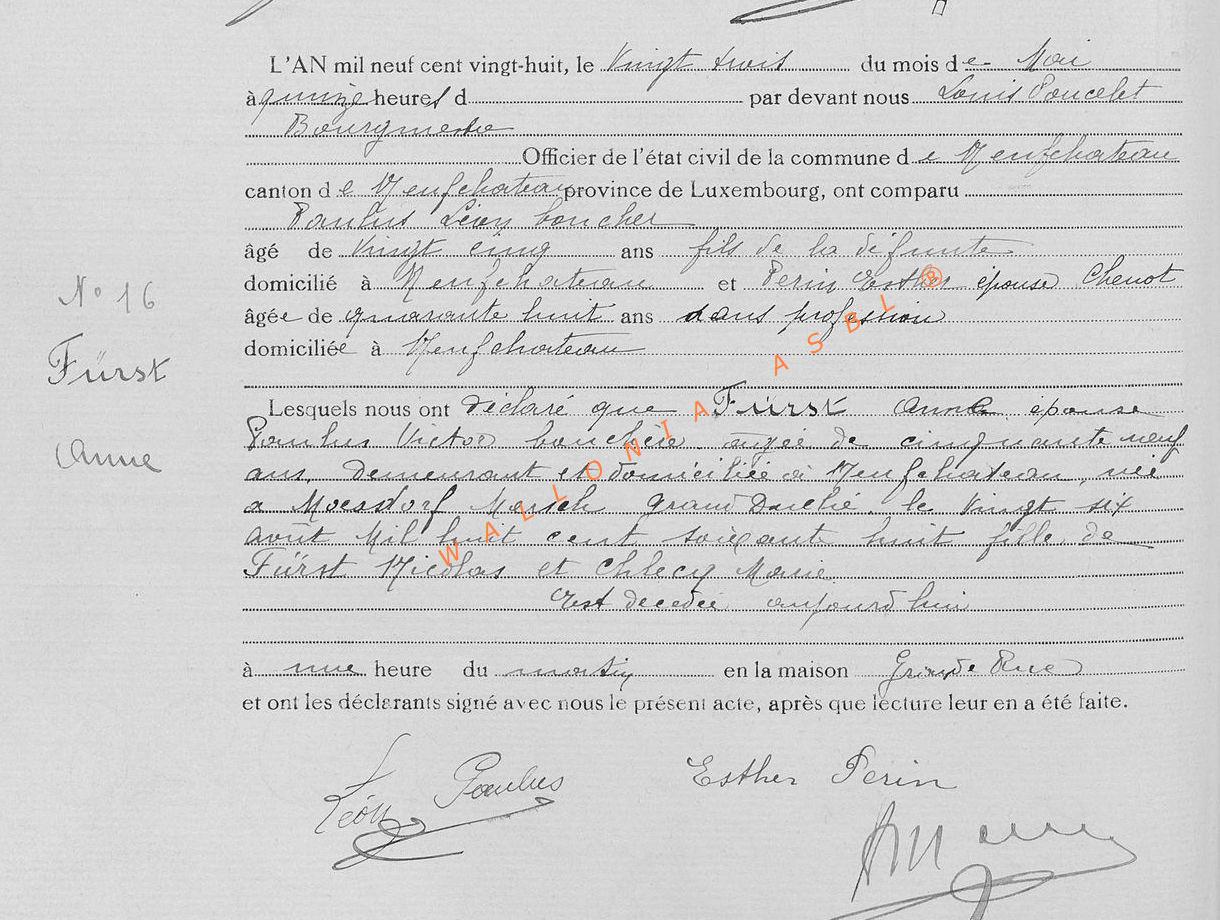 L'AN mil neuf cent vingt-huit, le Vingt trois du mois de Mai
à quinze heures d par devant nous Louis Poncelet
Bourgmestre
Officier de l'état civil de la commune de Neufchateau
canton de Neufchateau province de Luxembourg, ont comparu
Paulus Léon boucher
âgé de Vingt cinq ans fils de la défunte
domicilié à Neufchateau et Perin Esther épouse Chenot
N° 16
âgée de quarante huit ans sans profession
domiciliée à Neufchateau
Fürst
Lesquels nous ont déclaré que Fürst Anne épouse
Paulus Victor bouchère agée de cinquante neuf
Anne
ans, demeurant et domiciliée à Neufchateau, née
a Moesdorf Mersch Grand Duché le Vingt six
août Mil huit cent soixante huit fille de
Fürst Nicolas et Marie
Est décédée aujourd'hui
à une heure du matin en la maison Grande Rue
et ont les déclarants signé avec nous le présent acte, après que lecture leur en a été faite.
Léon Paulus Esther Perin
WALLONIA ASBL ®